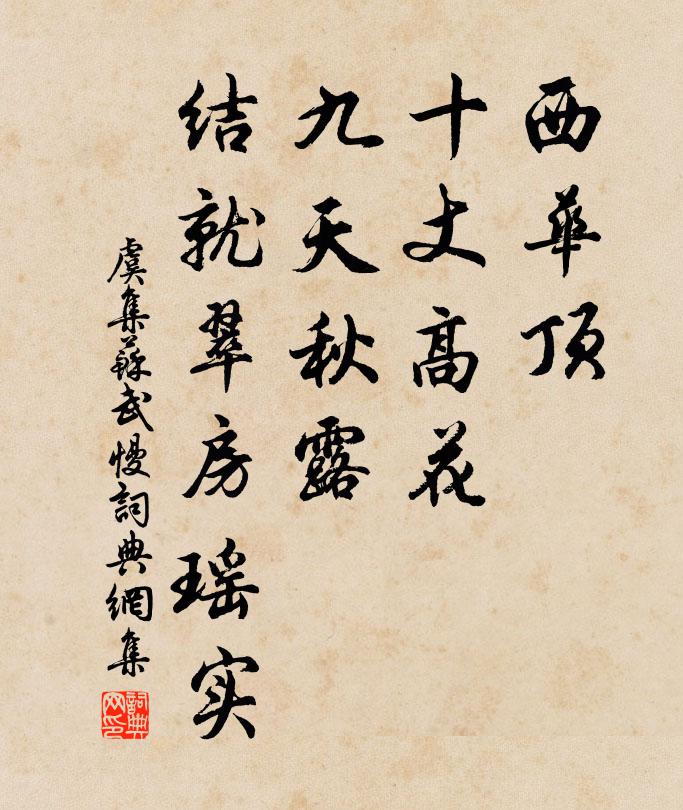 西華顶
十丈高花
九天秋露
结就翠房瑶实
虞集蘇武慢詞典網集
詞典网印